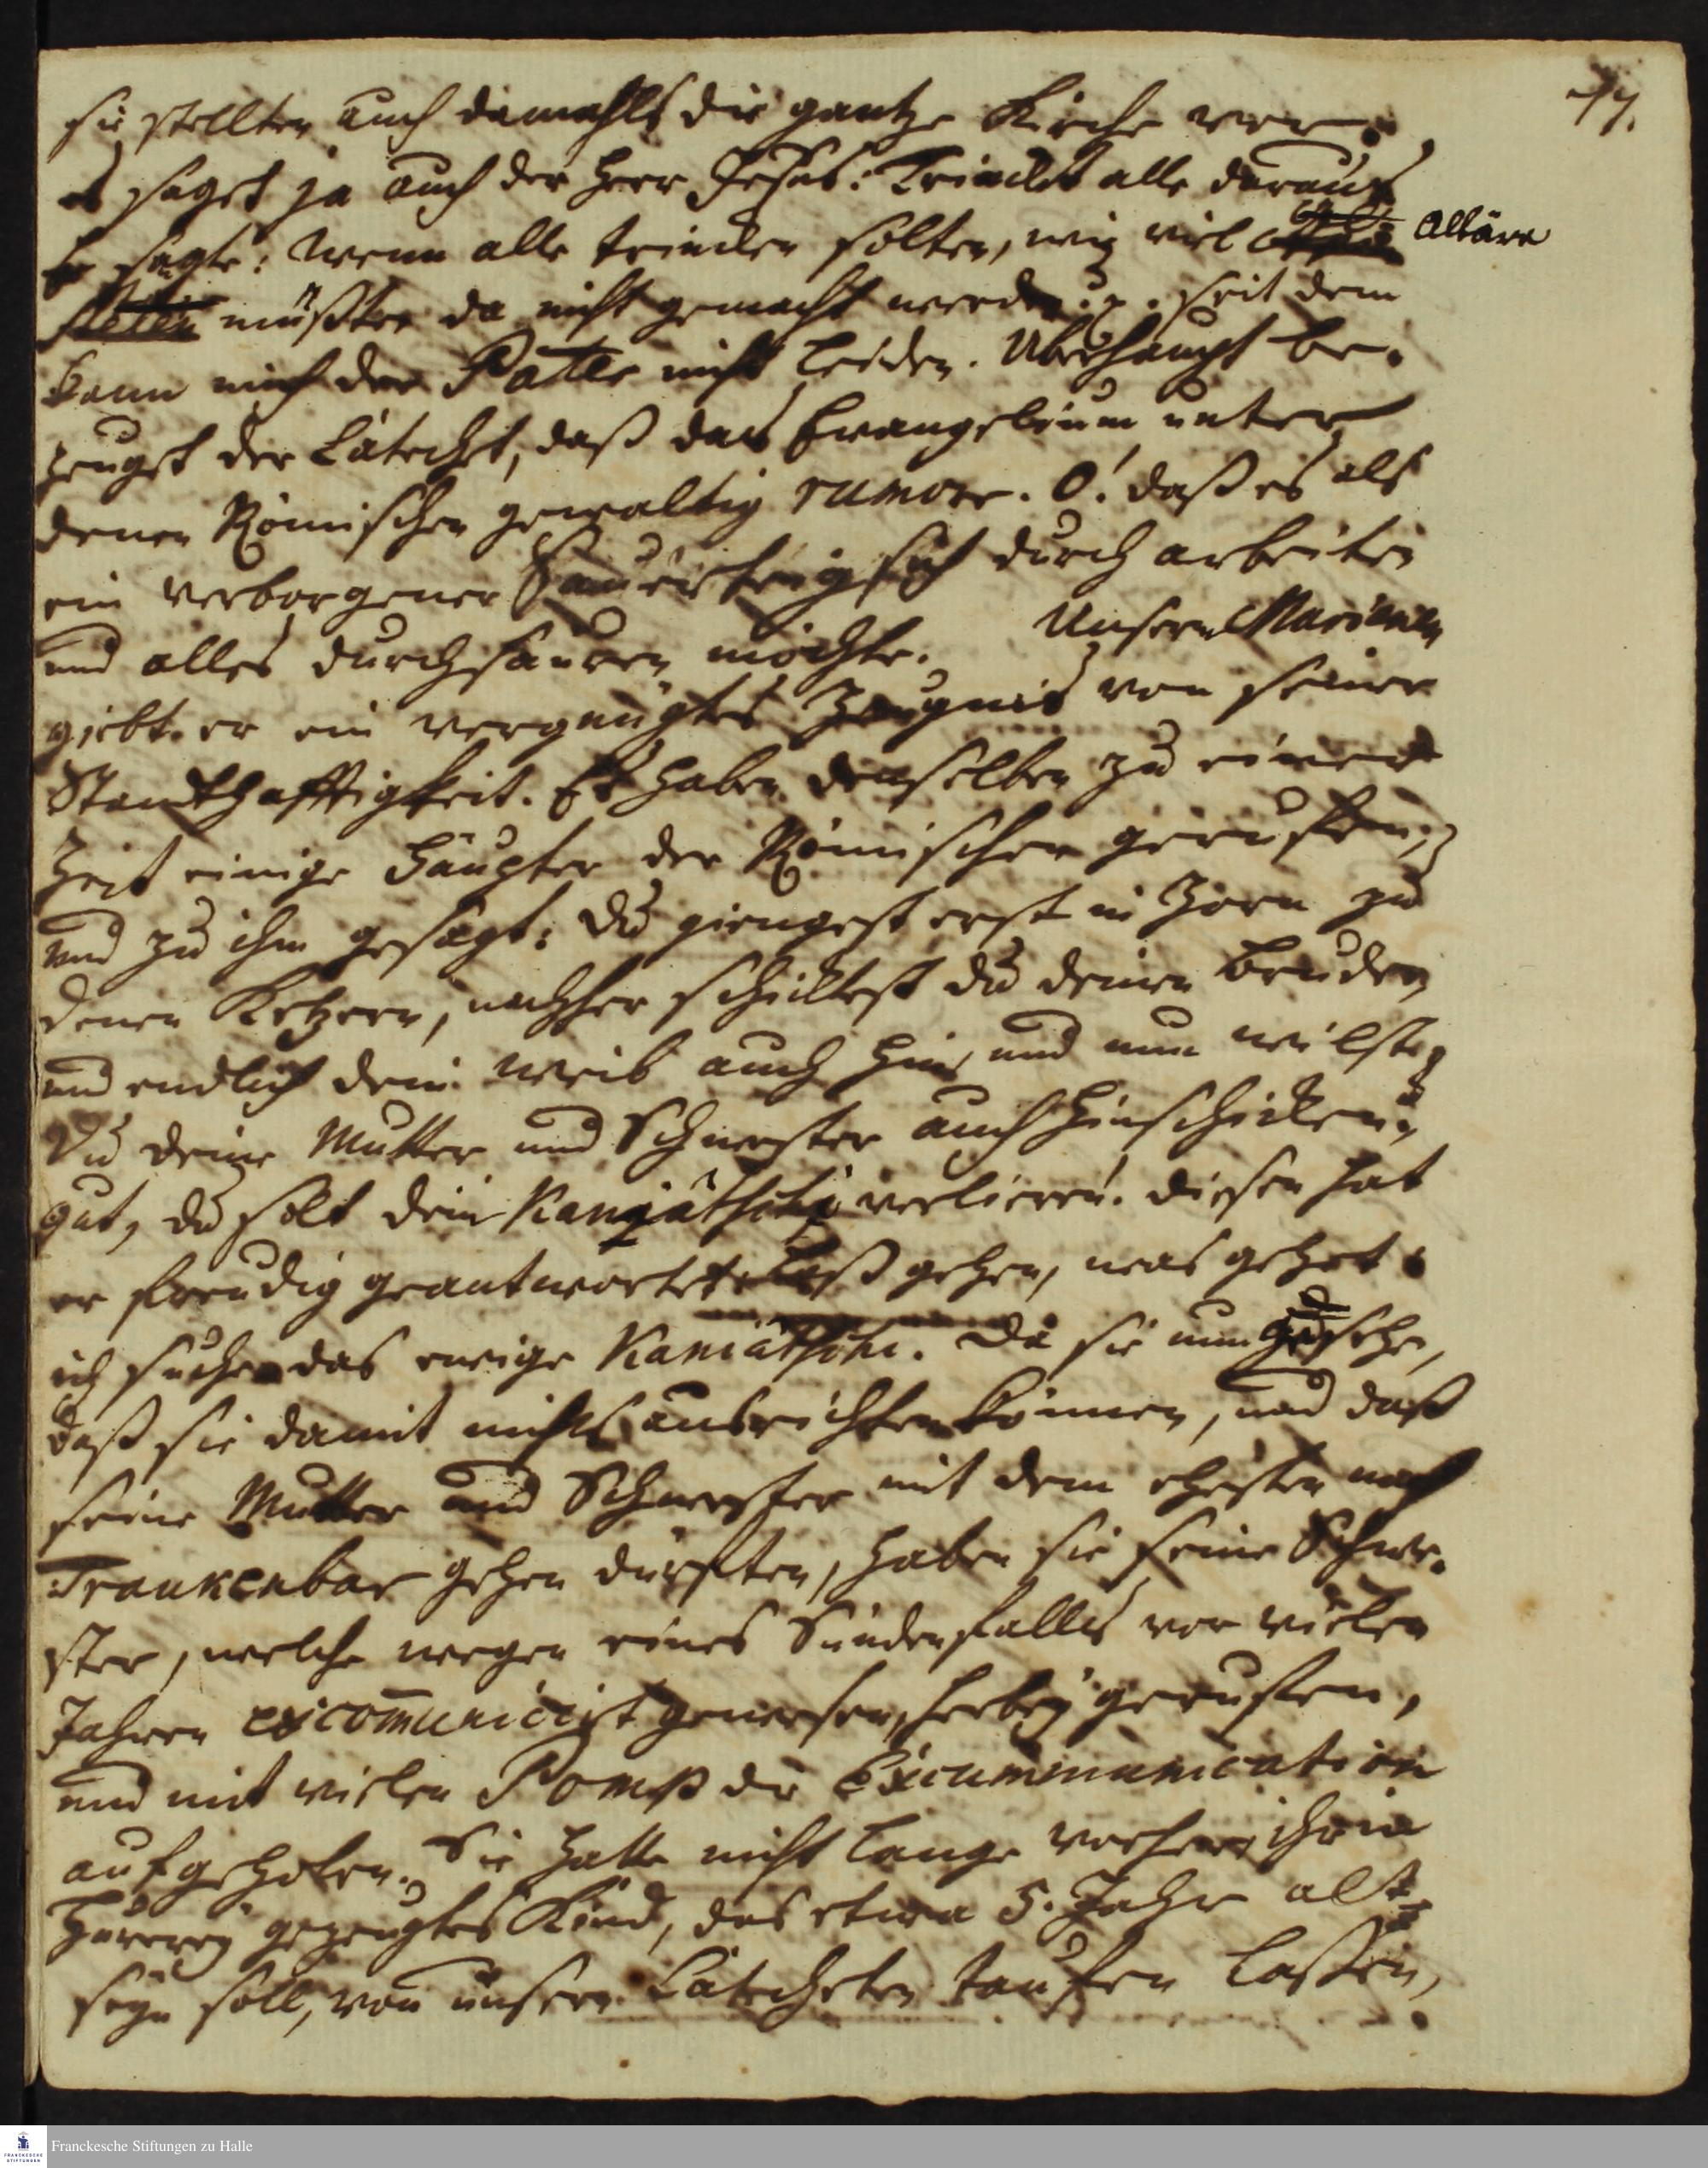 77.
sie stellten auch damahls die gantze Kirche vor.
es saget ja auch der Herr Jesus: Trincket alle daraus
Er sagte: Wenn alle trincken solten, wie viel Altäre
müßten da nicht gemacht werden. Seit dem
kann mich der Pater nicht leiden. Überhaupt be-
zeuget der Catechet, daß das Evangelium unter
denen Römischen gewaltig rumore. O! daß es als
ein verborgener Sauerteig sich durch arbeiten
und alles durchsäuren möchte. Unsern
giebt er ein vergnügtes Zeugnis von seiner
Standhafftigkeit. Es haben denselben zu einer
Zeit einige Häupter der Römischen geruffen,
und zu ihm gesagt: Du giengest erst in Zorn zu
denen Ketzern, nachher schicktest du deinen Bruder
und endlich dein Weib auch hin, und nun wilst
Du deine Mutter und Schwester auch hinschicken;
gut, du solt dein Kaniátschi verlieren. Diesen hat
er freudig geantwortet: Laß gehen, was gehet;
ich suche das ewige Kaniátschi. Da sie nun gesehen,
daß sie damit nichts ausrichten können, und daß
seine Mutter und Schwester mit dem ehesten nach
Trankenbar gehen dürften, haben sie seine Schwe-
ster, welche wegen eines Sündenfalles vor vielen
Jahren excom̄unicirt gewesen, herbey geruffen,
und mit vielen Pomp die Excummunication
aufgehoben. Sie hatte nicht lange vorher ihr in
Hurerey gezeugtes Kind, das etwa 5. Jahr alt
seyn soll, von unsern Catecheten tauffen lassen,
Franckesche Stiftungen zu Halle